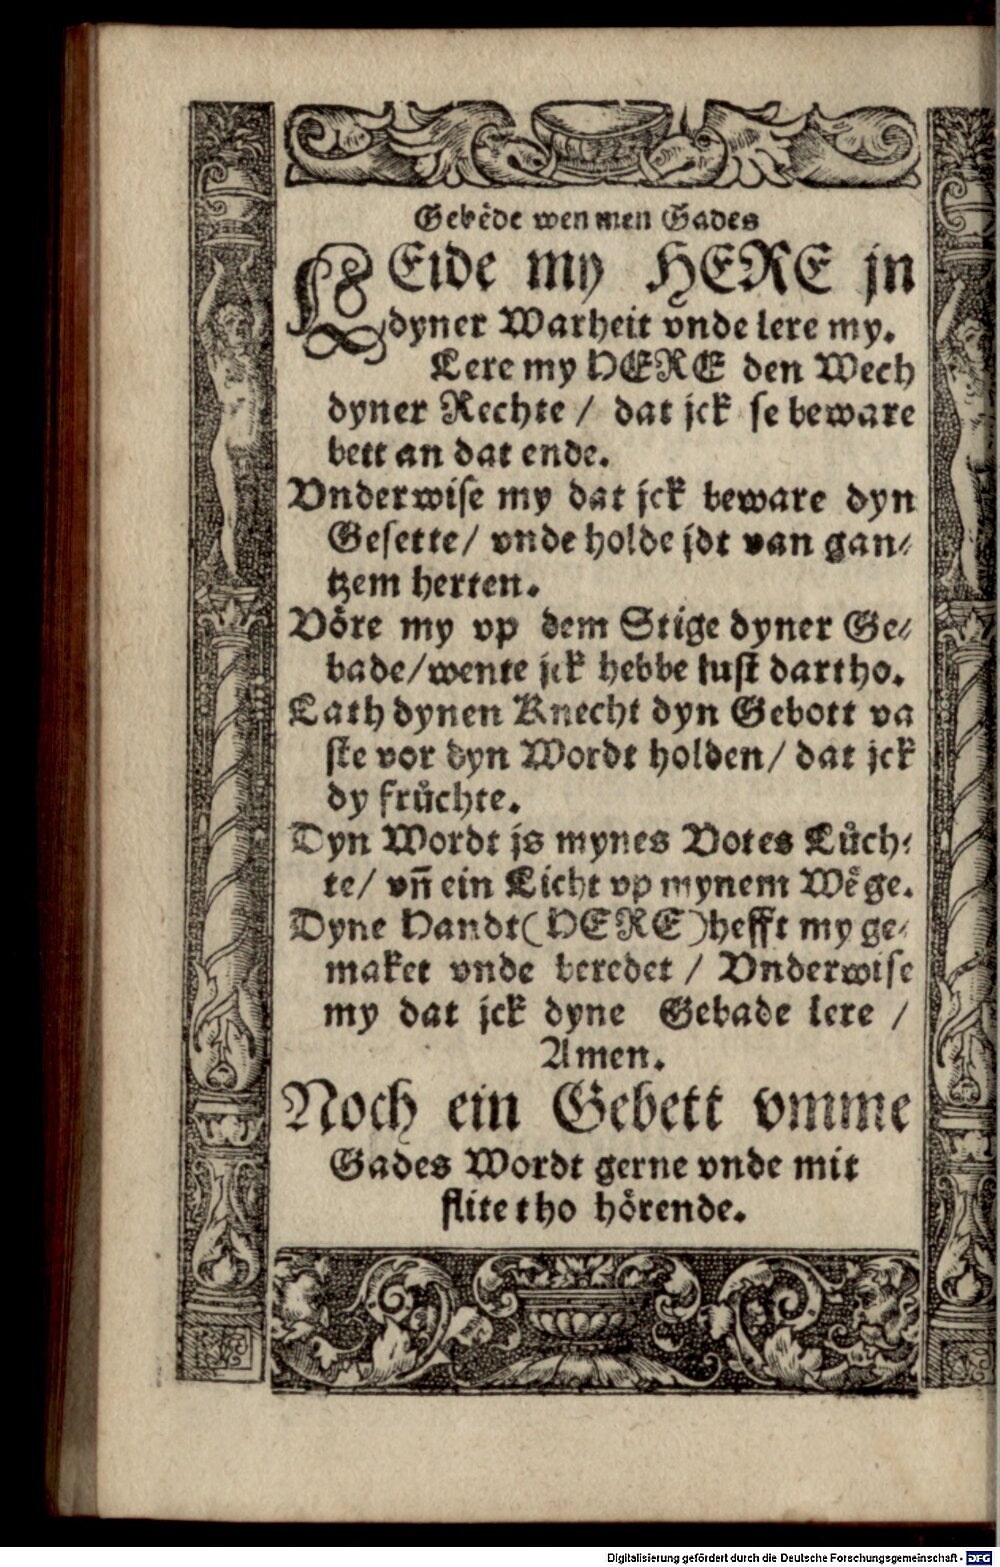 Gebêde wen men Gades
LEide my HERE jn
dyner Warheit vnde lere my.
Lere my HERE den Wech
dyner Rechte / dat jck se beware
bett an dat ende.
Vnderwise my dat jck beware dyn
Gesette/ vnde holde jdt van gan⸗
tzem herten.
Vöre my vp dem Stige dyner Ge⸗
bade/wente jck hebbe lust dartho.
Lath dynen Knecht dyn Gebott va
ste vor dyn Wordt holden/ dat jck
dy früchte.
Dyn Wordt js mynes Votes Lüch⸗
te/ vñ ein Licht vp mynem Wêge.
Dyne Handt(HERE)hefft my ge⸗
maket vnde beredet / Vnderwise
my dat jck dyne Gebade lere /
Amen.
Noch ein Gebett vmme
Gades Wordt gerne vnde mit
flite tho hörende.
Digitalisierung gefördert durch die Deutsche Forschungsgemeinschaft - DFG